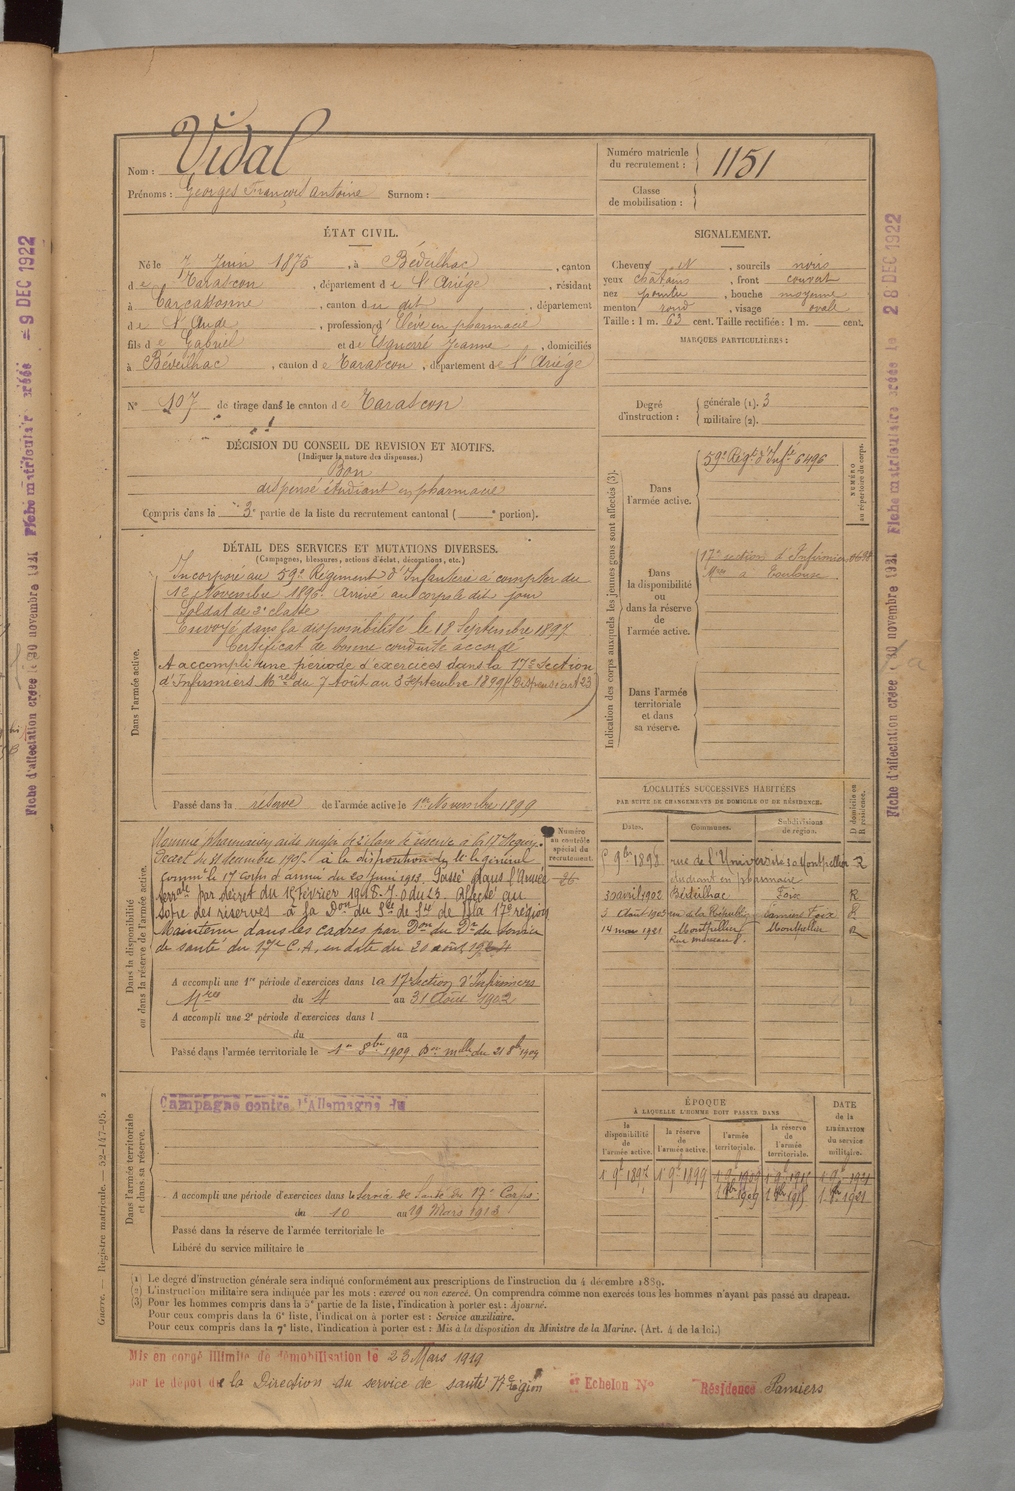 Vidal
Nom :
Prénoms : Georges François Antoine Surnom :
Numéro matricule du recrutement : 1151
Classe de mobilisation :
ÉTAT CIVIL.
Né le 7 Juin 1875, à Bédeilhac, canton
de Tarascon, département de l'Ariège, résidant
à Carcassonne, canton du dit, département
de l'Aude, profession d'Elève en pharmacie
fils de Gabriel et de Esquerré Jeanne, domiciliés
à Bédeilhac, canton de Tarascon, département de l'Ariège
N° 107 de tirage dans le canton de Tarascon
SIGNALEMENT.
Cheveux N, sourcils noirs
yeux châtains, front couvert
nez pointu, bouche moyenne
menton rond, visage ovale
Taille : 1 m. 63 cent. Taille rectifiée : 1 m. cent.
MARQUES PARTICULIÈRES :
Degré d'instruction : générale (1). 3
militaire (2).
DÉCISION DU CONSEIL DE REVISION ET MOTIFS.
(Indiquer la nature des dispenses.)
Bon
dispensé étudiant en pharmacie
Compris dans la 3e partie de la liste du recrutement cantonal ( e portion).
DÉTAIL DES SERVICES ET MUTATIONS DIVERSES.
(Campagnes, blessures, actions d'éclat, décorations, etc.)
Dans l'armée active.
Incorporé au 59e Régiment d'Infanterie à compter du
1er Novembre 1896. Arrivé au corps le dit jour
Soldat de 2e classe
Envoyé dans la disponibilité le 18 Septembre 1897
Certificat de bonne conduite accordé
A accompli une période d'exercices dans la 17e Section
d'Infirmiers Mres du 7 Août au 3 Septembre 1899 (Dispensé art 23)
Passé dans la réserve de l'armée active le 1er Novembre 1899
Indication des corps auxquels les jeunes gens sont affectés (3).
NUMÉRO au répertoire du corps.
Dans l'armée active.
59e Régt d'Infie 6496
Dans la disponibilité ou dans la réserve de l'armée active.
17e section d'Infirmiers
Mres à Toulouse
Dans l'armée territoriale et dans sa réserve.
LOCALITÉS SUCCESSIVES HABITÉES
PAR SUITE DE CHANGEMENTS DE DOMICILE OU DE RÉSIDENCE.
Dates. Communes. Subdivisions de région. D domicile ou R résidence.
9bre 1898 rue de l'Université à Montpellier R
étudiant en pharmacie
30 avril 1902 Bédeilhac Foix R
Août 1903 Pamiers Foix R
14 mars 1921 Montpellier Montpellier R
Dans la disponibilité ou dans la réserve de l'armée active.
Numéro au contrôle spécial du recrutement.
26
Nommé pharmacien aide major de 2e classe de réserve à la 17e Région.
Décret du 31 décembre 1907. à la disposition du général
Commt le 17 corps d'armée du 20 juin 1913. Passé dans l'Armée
terrale par décret du 15 février 1918. J. O du 23. Affecté au
Maintenu dans les cadres par Don du Dr du Service
de santé du 17e C.A. en date du 20 août
A accompli une 1re période d'exercices dans la 17e Section d'Infirmiers
Mres du 4 au 31 Août 1902
A accompli une 2e période d'exercices dans l
du au
Passé dans l'armée territoriale le 1er 8bre 1909. Don melle du 21 8bre 1909
Dans l'armée territoriale et dans sa réserve.
Campagne contre l'Allemagne du
A accompli une période d'exercices dans le Service de Santé du 17e Corps
du 10 au 19 Mars 1913
Passé dans la réserve de l'armée territoriale le
Libéré du service militaire le
ÉPOQUE
À LAQUELLE L'HOMME DOIT PASSER DANS
DATE de la LIBÉRATION du service militaire.
la disponibilité de l'armée active. la réserve de l'armée active. l'armée territoriale. la réserve de l'armée territoriale.
1 9bre 1897 1 9bre 1899 1 9bre 1909 1 9bre 1915 1 9bre 1921
(1) Le degré d'instruction générale sera indiqué conformément aux prescriptions de l'instruction du 4 décembre 1889.
(2) L'instruction militaire sera indiquée par les mots : exercé ou non exercé. On comprendra comme non exercés tous les hommes n'ayant pas passé au drapeau.
(3) Pour les hommes compris dans la 5e partie de la liste, l'indication à porter est : Ajourné.
Pour ceux compris dans la 6e liste, l'indication à porter est : Service auxiliaire.
Pour ceux compris dans la 7e liste, l'indication à porter est : Mis à la disposition du Ministre de la Marine. (Art. 4 de la loi.)
Guerre. — Registre matricule. — 52-147-95.
Mis en congé illimité de démobilisation le 23 Mars 1919
par le dépôt de la Direction du service de santé 17e Région er Echelon N° Résidence Pamiers
Fiche d'affectation créée le 30 novembre 1921 Fiche matriculaire créée le 9 DEC 1922
Fiche d'affectation créée le 30 novembre 1921 Fiche matriculaire créée le 28 DEC 1922